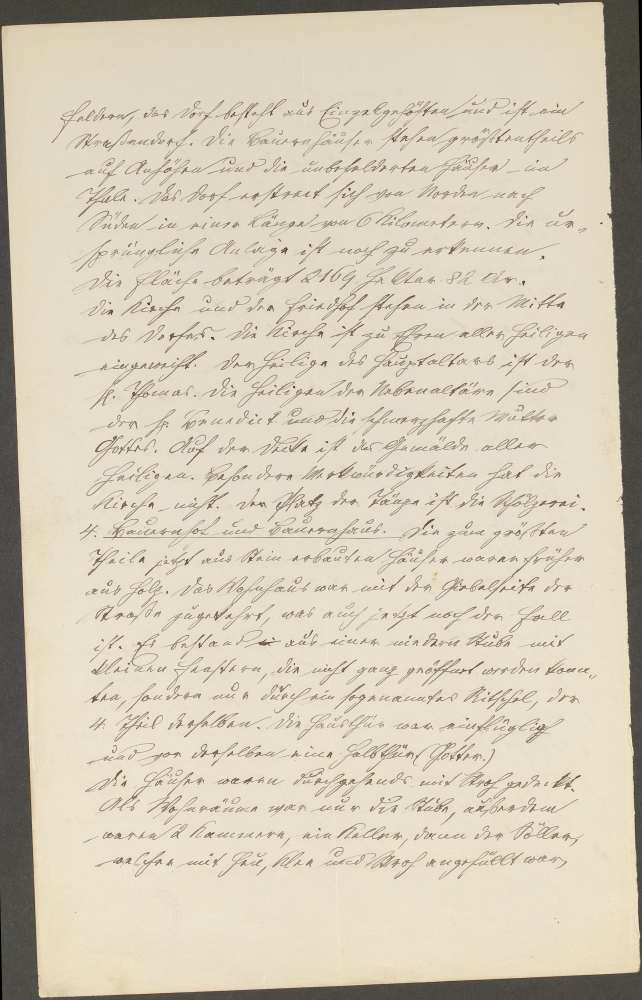 feldern, das Dorf besteht aus Einzelgehöften und ist ein
Straßendorf. Die Bauernhäuser stehen größtentheils
auf Anhöhen und die unbefelderten Häuser im
Thale. Das Dorf erstreckt sich von Norden nach
Süden in einer Länge von 6 Kilometern. Die ur-
sprüngliche Anlage ist noch zu erkennen.
Die Fläche beträgt 2169 Hektar 82 Ar.
Die Kirche und der Friedhof stehen in der Mitte
des Dorfes. Die Kirche ist zu Ehren aller Heiligen
eingeweiht. Der Heilige des Hauptaltars ist der
hl. Thomas. Die Heiligen der Nebenaltäre sind
der hl. Benedict und die schmerzhafte Mutter
Gottes. Auf der Decke ist das Gemälde aller
Heiligen. Besondere Merkwürdigkeiten hat die
Kirche nicht. Der Platz der Tänze ist die Scholzerei.
4. Bauernhof und Bauernhaus. Die zum größten
Theile jetzt aus Stein erbauten Häuser waren früher
aus Holz. Das Wohnhaus war mit der Giebelseite der
Straße zugekehrt, was auch jetzt noch der Fall
ist. Es bestand aus einer niedern Stube mit
kleinen Fenstern, die nicht ganz geöffnet werden konn-
ten, sondern nur durch ein sogenanntes, der
4. Theil derselben. Die Hausthür war einflüglig
und vor derselben eine Halbthür (Gatter.)
Die Häuser waren durchgehends mit Stroh gedeckt.
Als Wohnräume war nur die Stube, außerdem
waren 2 Kammern, ein Keller, dann der Söller,
welcher mit Heu, Klee und Stroh angefüllt war,